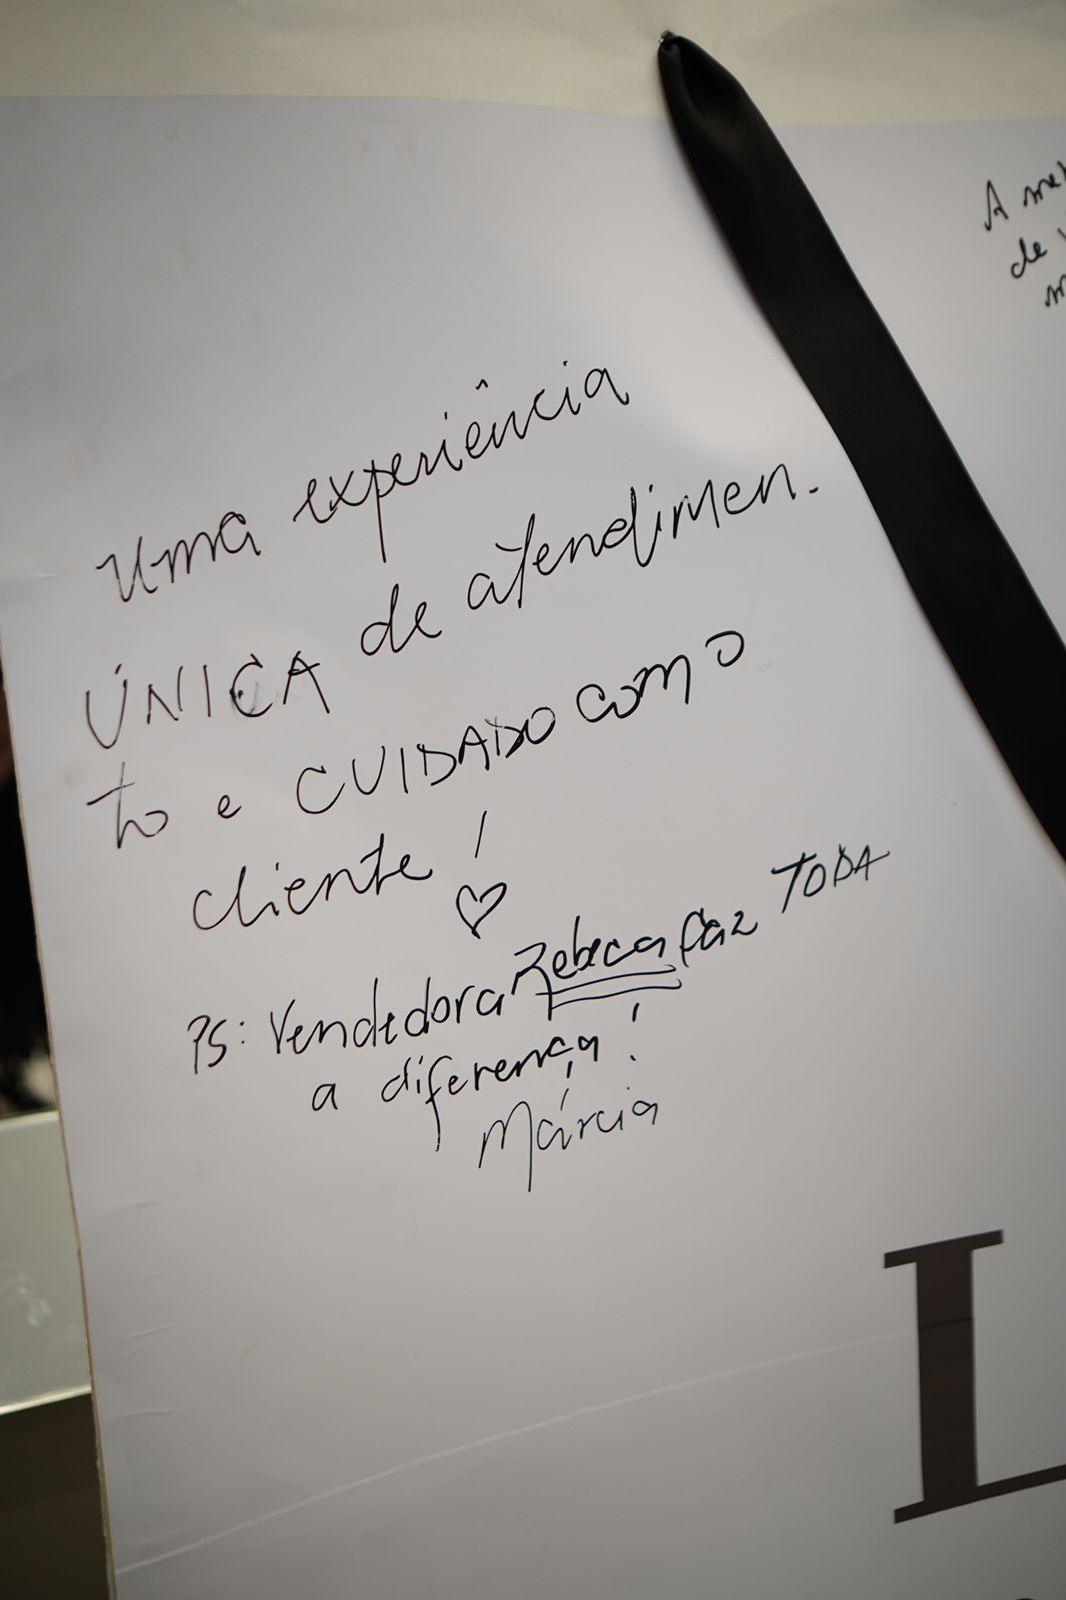 uma experiência
ÚNICA de atendimen.
to e CUIDADO com o
cliente!
Ps: Vendedora Rebeca faz TODA
a diferença!
Márcia
A me
de
m
L